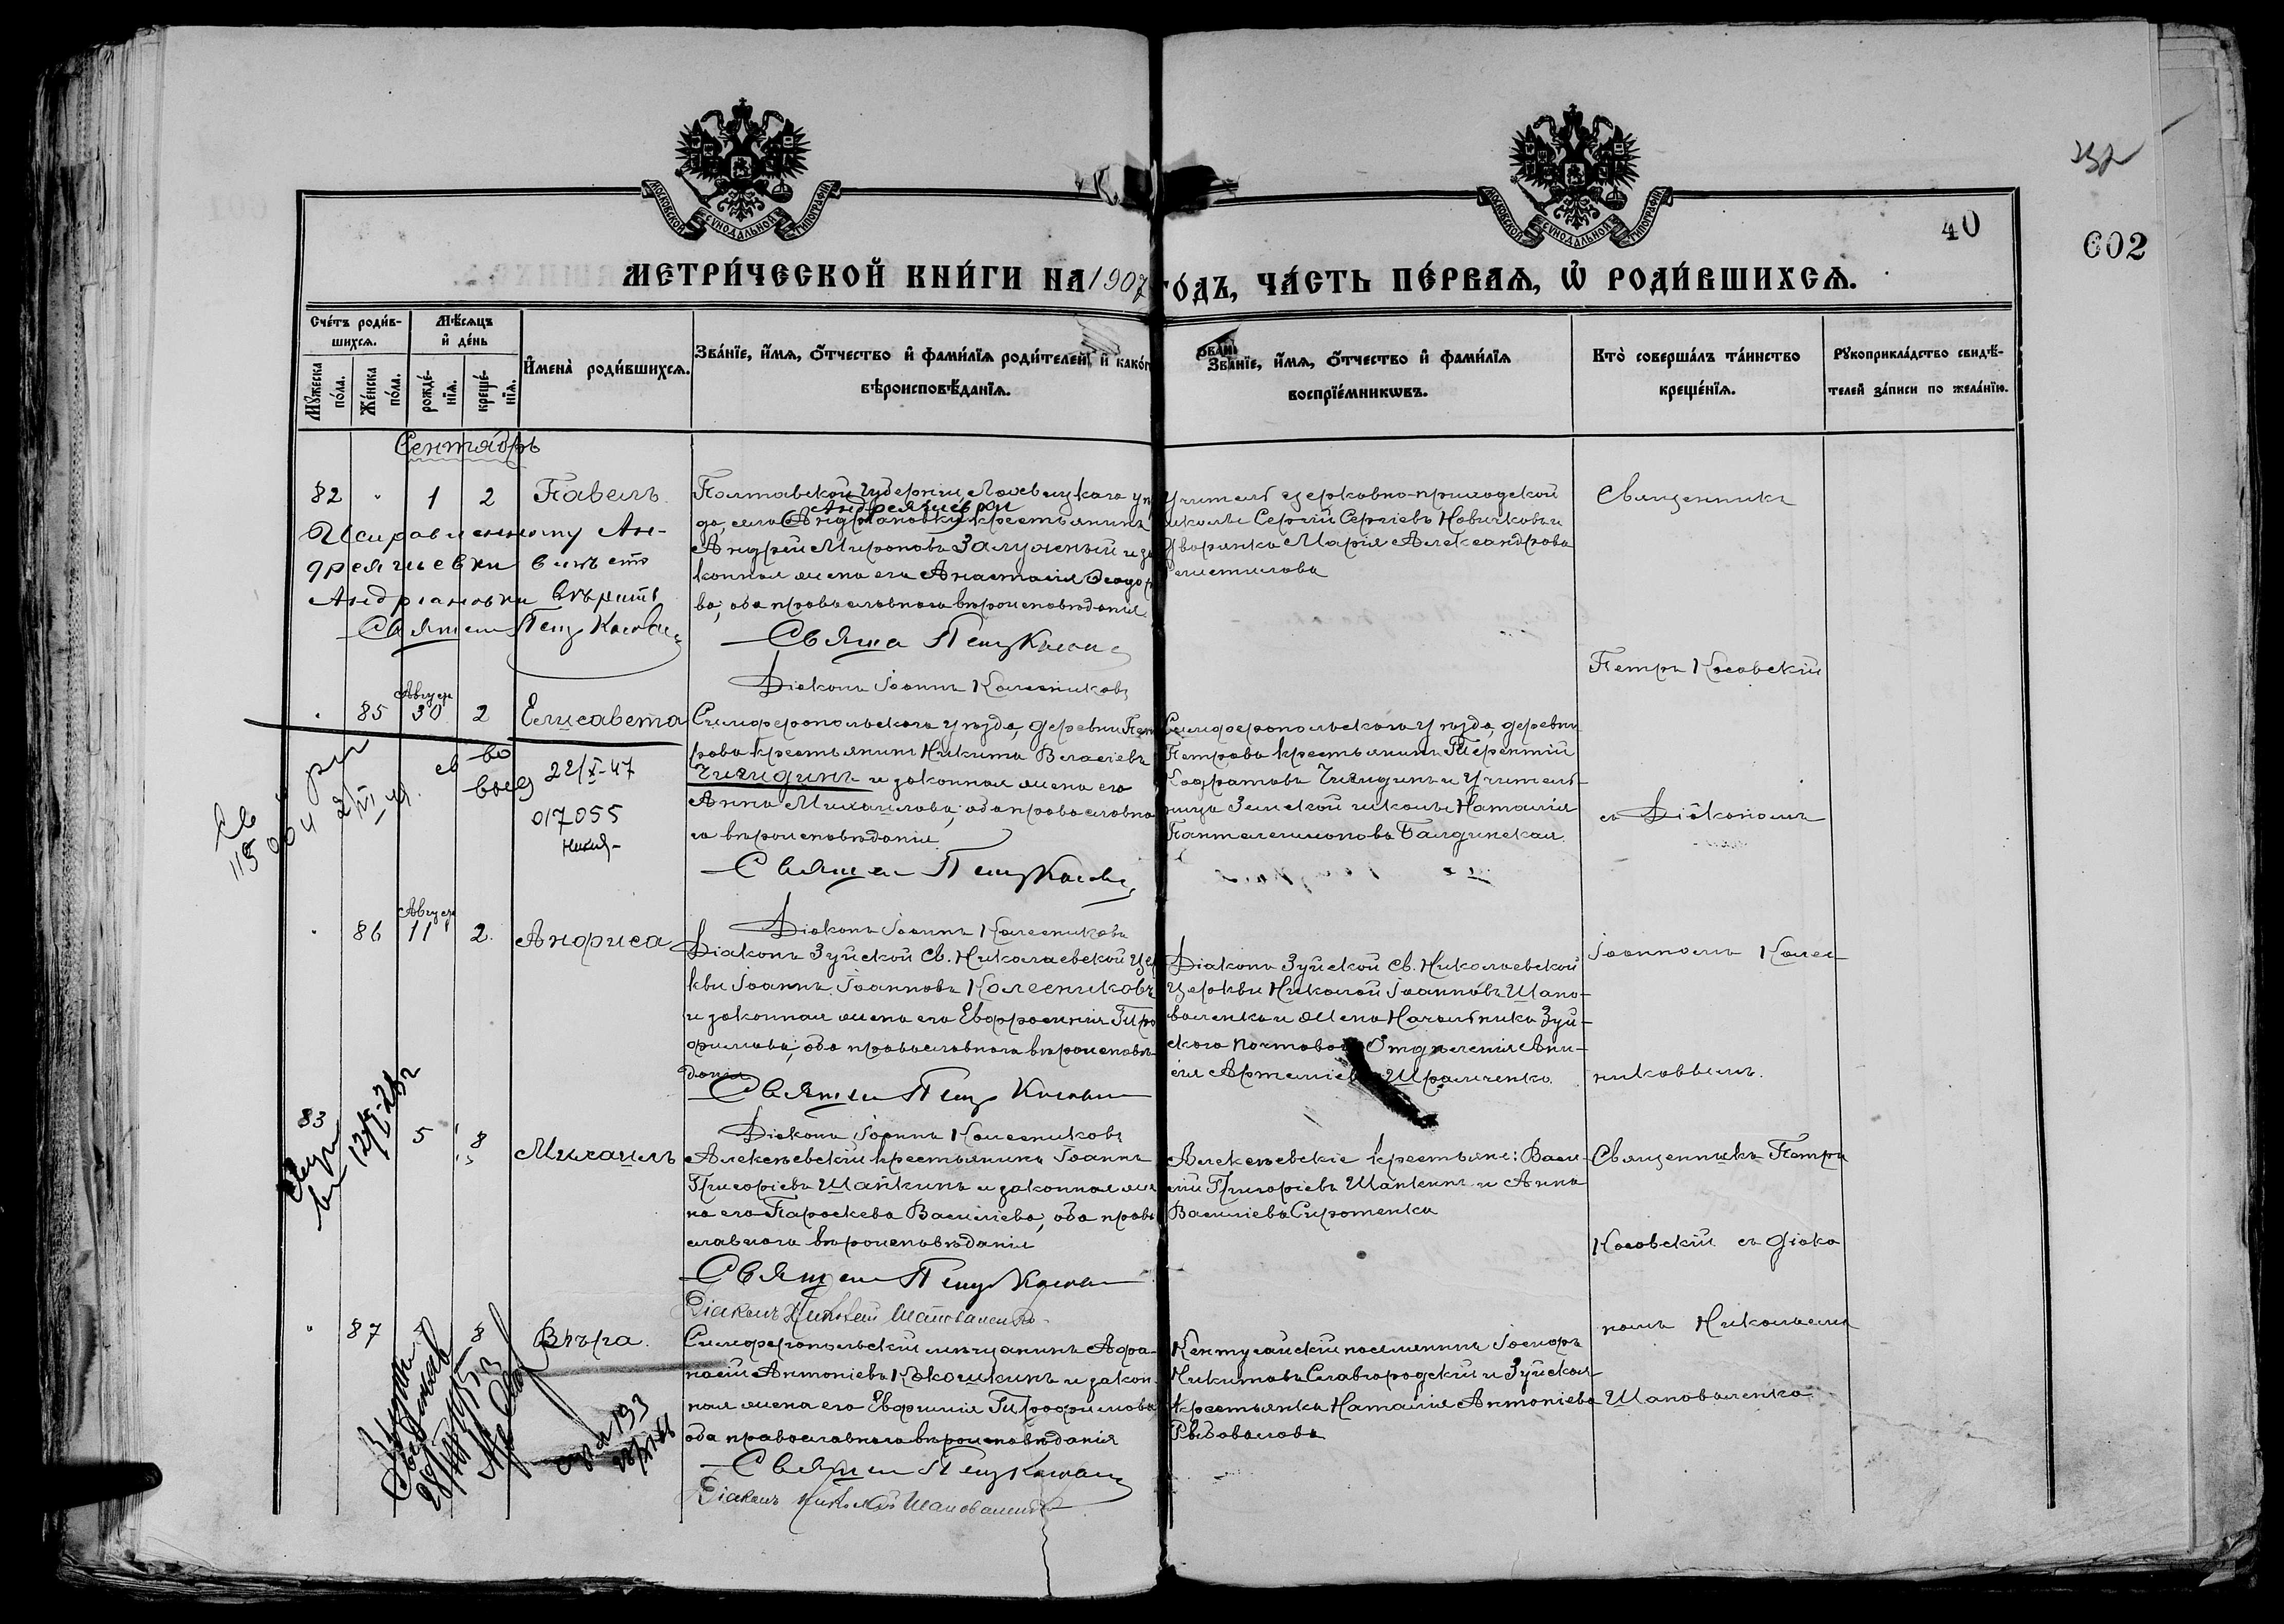 МОСКОВСКОЙ СѴНОДАЛЬНОЙ ТИПОГРАФІИ
МОСКОВСКОЙ СѴНОДАЛЬНОЙ ТИПОГРАФІИ
40
602
МЕТРИ́ЧЕСКОЙ КНИ́ГИ НА 1907 ГО́ДЪ, ЧА́СТЬ ПЕ́РВАѦ, Ѡ҆ РОДИ́ВШИХСѦ.
Сче́тъ роди́в-
шихсѧ.
Мѣ́сѧцъ
и҆ де́нь
Мꙋжеска по́ла.
Же́нска по́ла.
рожде́-
нїѧ.
креще́-
нїѧ.
И҆мена̀ роди́вшихсѧ.
Зва́нїе, и҆́мѧ, ѻ҆́тчество и҆ фами́лїѧ роди́телей, и҆ како́г
вѣроисповѣ́данїѧ.
Зва́нїе, и҆́мѧ, ѻ҆́тчество и҆ фами́лїѧ
воспрїе́мникѡвъ.
Кто̀ соверша́лъ та́инство
креще́нїѧ.
Рꙋкоприкла́дство свидѣ́-
телей за́писи по жела́нїю.
Сентябрь
82 " 1 2 Павелъ
Полтавской губерніи Лохвицкаго уѣз
Андреяшевки
да, села Андріановки крестьянинъ
Андрей Мироновъ Залужный и за
конная жена его Анастасія Ѳеодоро
ва, оба православнаго вѣроисповѣданія
Исправленному Ан-
дреяшевки вмѣсто
Андріановки вѣрить
Священ Петръ Косовс
Священ Петръ Косовс
Діаконъ Іоаннъ Колесниковъ
Учитель церковно-приходской
школы Сергій Сергіевъ Новичковъ и
Дворянка Марія Александрова
Священникъ
Петръ Косовскій
съ Діакономъ
Іоанномъ Колес
никовымъ.
Август
" 85 30 2 Елисавета
Симферопольскаго уѣзда, деревни Пет
рова крестьянинъ Никита Власіевъ
Чигидинъ и законная жена его
Анна Михаилова, оба православна
го вѣроисповѣданія
Священ Петръ Косовс
Діаконъ Іоаннъ Колесниковъ
Симферопольскаго уѣзда, деревни
Петрова крестьянинъ Терентій
Кодратовъ Чигидинъ и Учитель
ница Земской школы Наталія
Пантелеимонова Балдинская.
св во
22/X-47
017055
Август
" 86 11 2. Анфиса
Діаконъ Зуйской Св. Николаевской Цер
кви Іоаннъ Іоанновъ Колесниковъ
и законная жена его Евфросинія Тро
фимова, оба православнаго вѣроисповѣ-
данія
Священ Петръ Косовс
Діаконъ Іоаннъ Колесниковъ
Діаконъ Зуйской Св. Николаевской
Церкви Николай Іоанновъ Шапо-
валенко и Жена Начальника Зуй-
скаго почтоваго Отдѣленія Ани-
сія Артеміева Шрамченко.
83 5 8 Михаилъ
Алексѣевскій крестьянинъ Іоаннъ
Григоріевъ Шапкинъ и законная же
на его Параскева Василіева, оба право
славнаго вѣроисповѣданія
Священ Петръ Косовс
Діаконъ Николай Шаповаленко
Алексѣевскіе крестьяне: Васи-
лій Григоріевъ Шапкинъ и Анна
Василіева Сиротенко
Священникъ Петръ
Косовскій съ Діако
номъ Николаемъ
Шаповаленко
" 87 8 Вѣра.
Симферопольскій мѣщанинъ Афа-
насій Антоніевъ Кокошкинъ и закон-
ная жена его Евфимія Трофимова
оба православнаго вѣроисповѣданія
Священ Петръ Косовс
Діаконъ Николай Шаповаленко
Кентугайскій поселянинъ Іосифъ
Никитовъ Славгородскій и Зуйская
крестьянка Наталія Антоніева
Рыбовалова